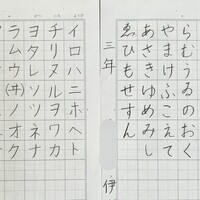 らむうゐのおく
やまけふこえて
あさきゆめみし
ゑひもせすん
三年 伊
イロハニホヘト
チリヌルヲワカ
ヨタレソツネナ
ラムウ(井)ノオク